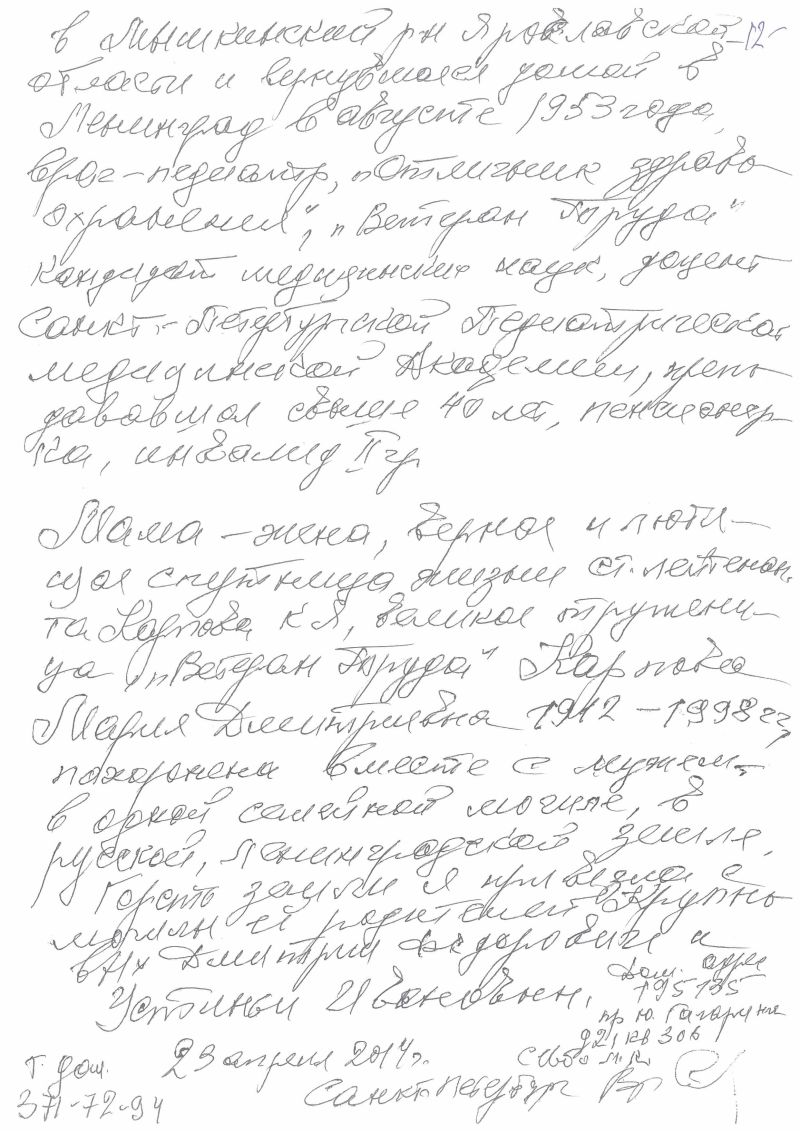 в Мышкинский р-н Ярославской -12-
области и вернувшаяся домой в
Ленинград в августе 1953 года,
врач-педиатр, „Отличник здраво-
охранения“, „Ветеран Труда“
кандидат медицинских наук, доцент
Санкт-Петербургской Педиатрической
медицинской Академии, препо
дававшая свыше 40 лет, пенсионер-
ка, инвалид II гр.
Мама - жена, верная и любя-
щая спутница жизни ст. лейтенан-
та Карпова К Я, великая тружени-
ца „Ветеран Труда“ Карпова
Мария Дмитриевна 1912 - 1998 гг,
похоронена вместе с мужем -
в одной семейной могиле, в
русской, Ленинградской земле.
Горсть земли я привезла с
могилы её родителей Крупно
вых Дмитрия Федоровича и
Устиньи Ивановны.
Дом. адрес
195135
пр Ю. Гагарина
кв 306
т. дом. 23 апреля 2014 г.
371-72-94 Санкт-Петербург